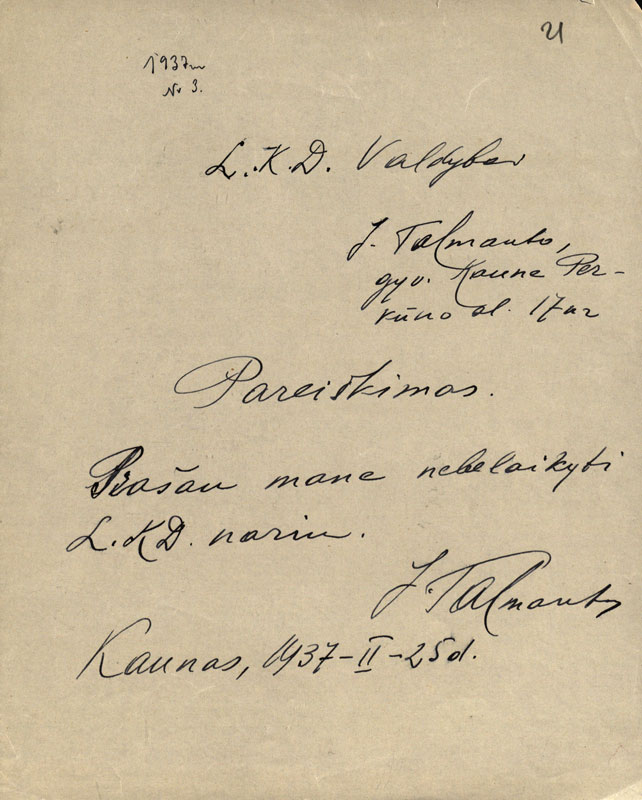 21
1937 m
Nr 3.
L.K.D. Valdybai
J. Talmanto,
gyv. Kaune Per-
kūno al. 17 nr
Pareiškimas.
Prašau mane nebelaikyti
L.K.D. nariu.
J. Talmantas
Kaunas, 1937-II-25 d.